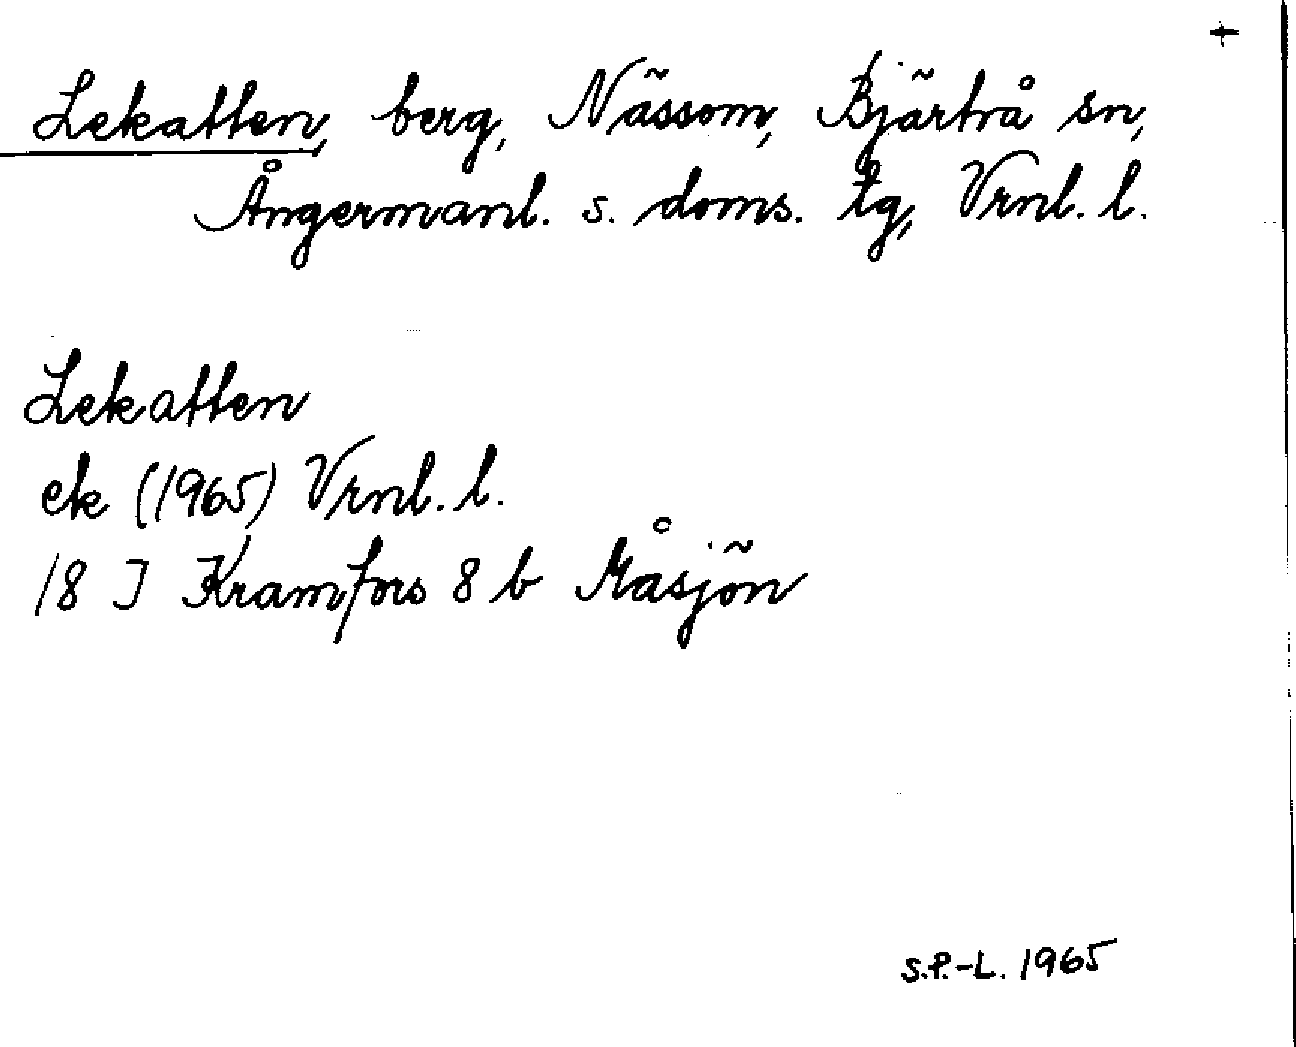 +
Lekatten, berg, Nässom, Bjärtrå sn,
Ångermanl. s. doms. tg, Vrnl. l.
Lekatten
ek (1965) Vrnl. l.
18 J Kramfors 8 b Måsjön
S.P.-L. 1965